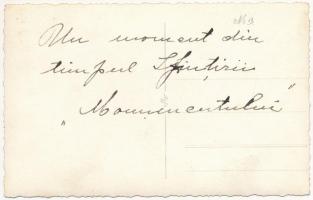 Un moment din
timpul Sfințirii
„Monumentului”